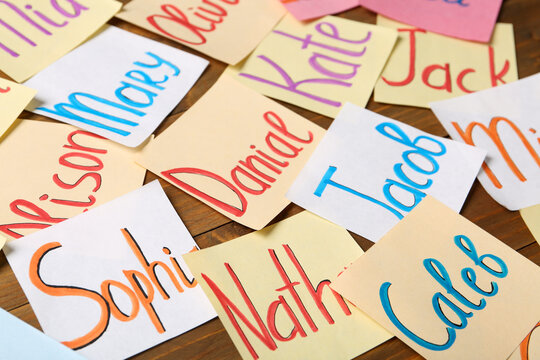 Mia
Olivi
Kate
Jack
Mary
Danial
Jacob
Mi
lison
Sophi
Nath
Caleb